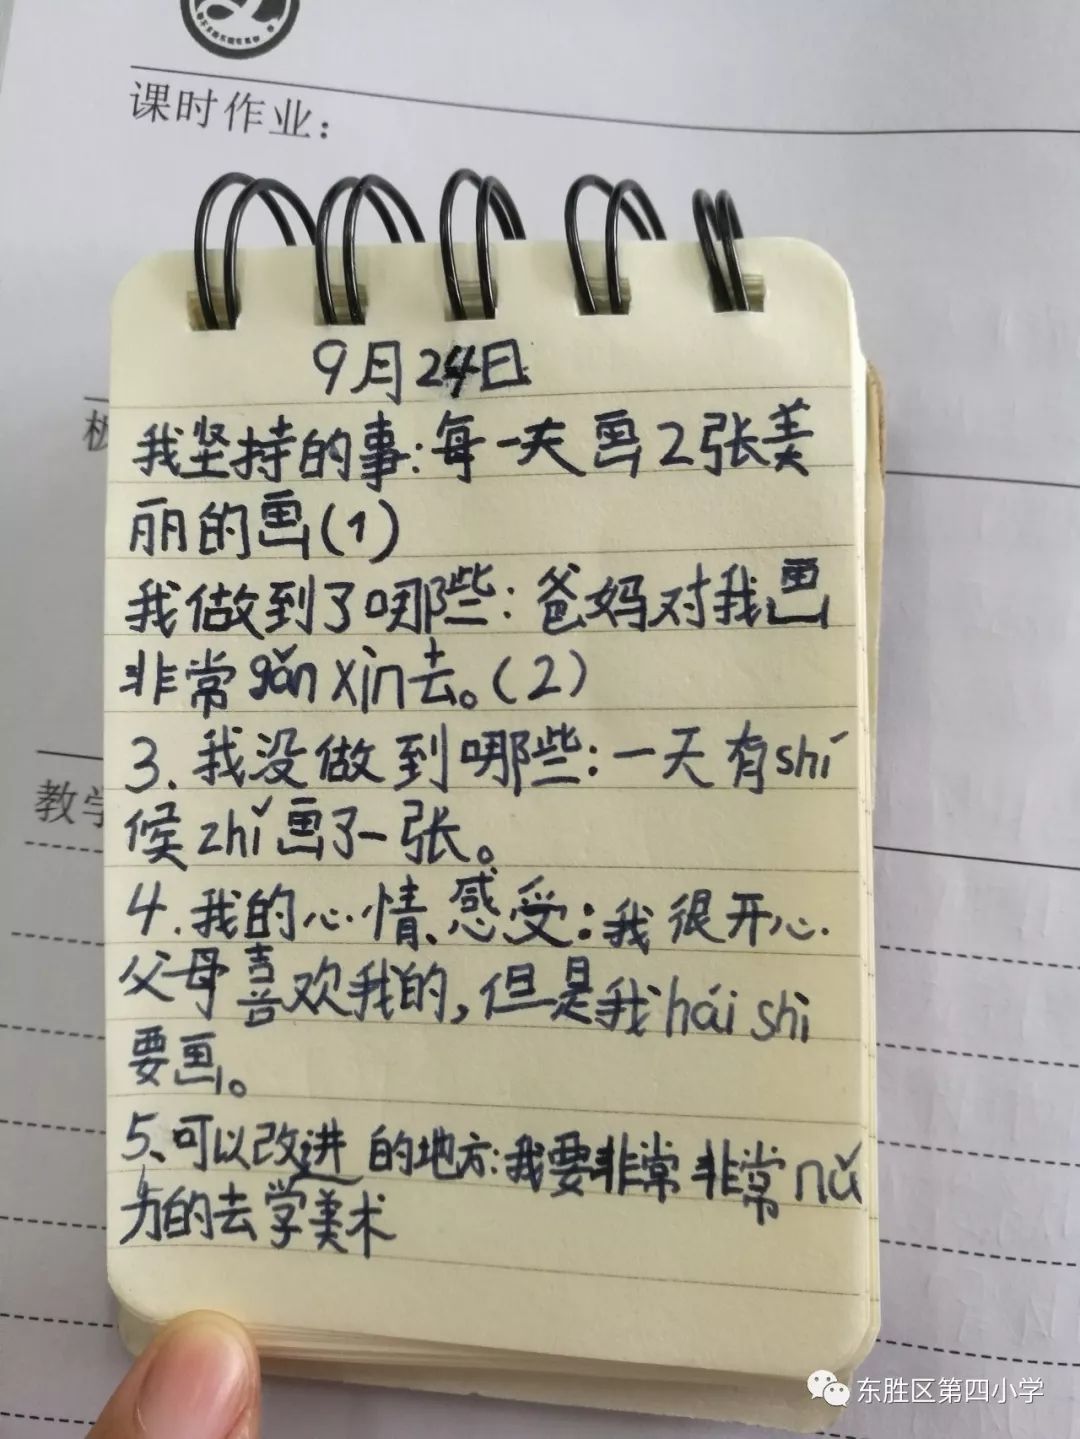 课时作业：
9月24日
我坚持的事：每一天画2张美
丽的画（1）
我做到了哪些：爸妈对我画
非常gǎn xìn去。（2）
教学
3、我没做到哪些：一天有shí
候zhǐ画了一张。
4、我的心情、感受：我很开心.
父母喜欢我的，但是我hái shi
要画。
5、可以改进的地方：我要非常非常nǔ
力的去学美术
东胜区第四小学